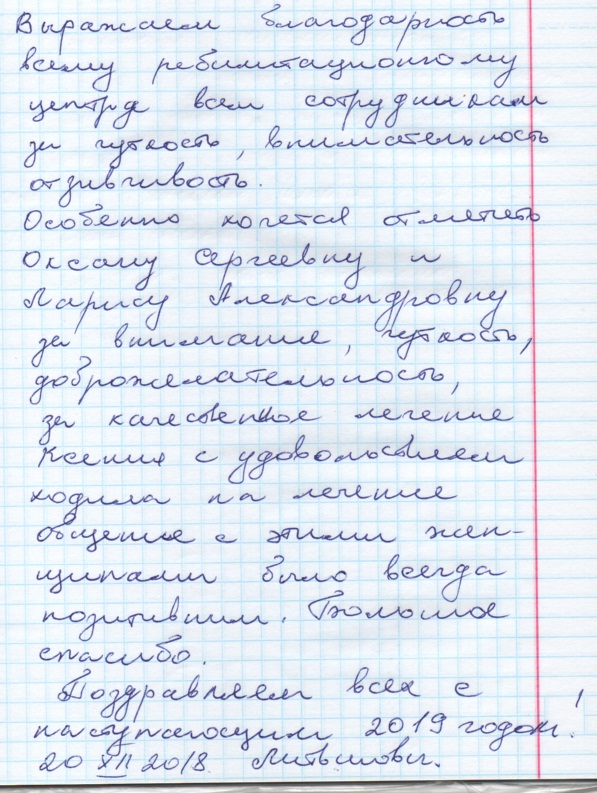 Выражаем благодарность
всему ребилитационному
центру всем сотрудникам
за чуткость, внимательность
отзывчивость.
Особенно хочется отметить
Оксану Сергеевну и
Ларису Александровну
за внимание, чуткость,
доброжелательность,
за качественное лечение
Ксения с удовольствием
ходила на лечение
общение с этими жен-
щинами было всегда
позитивным. Большое
спасибо.
Поздравляем всех с
наступающим 2019 годом!
20 XII 2018. Литвиновы.